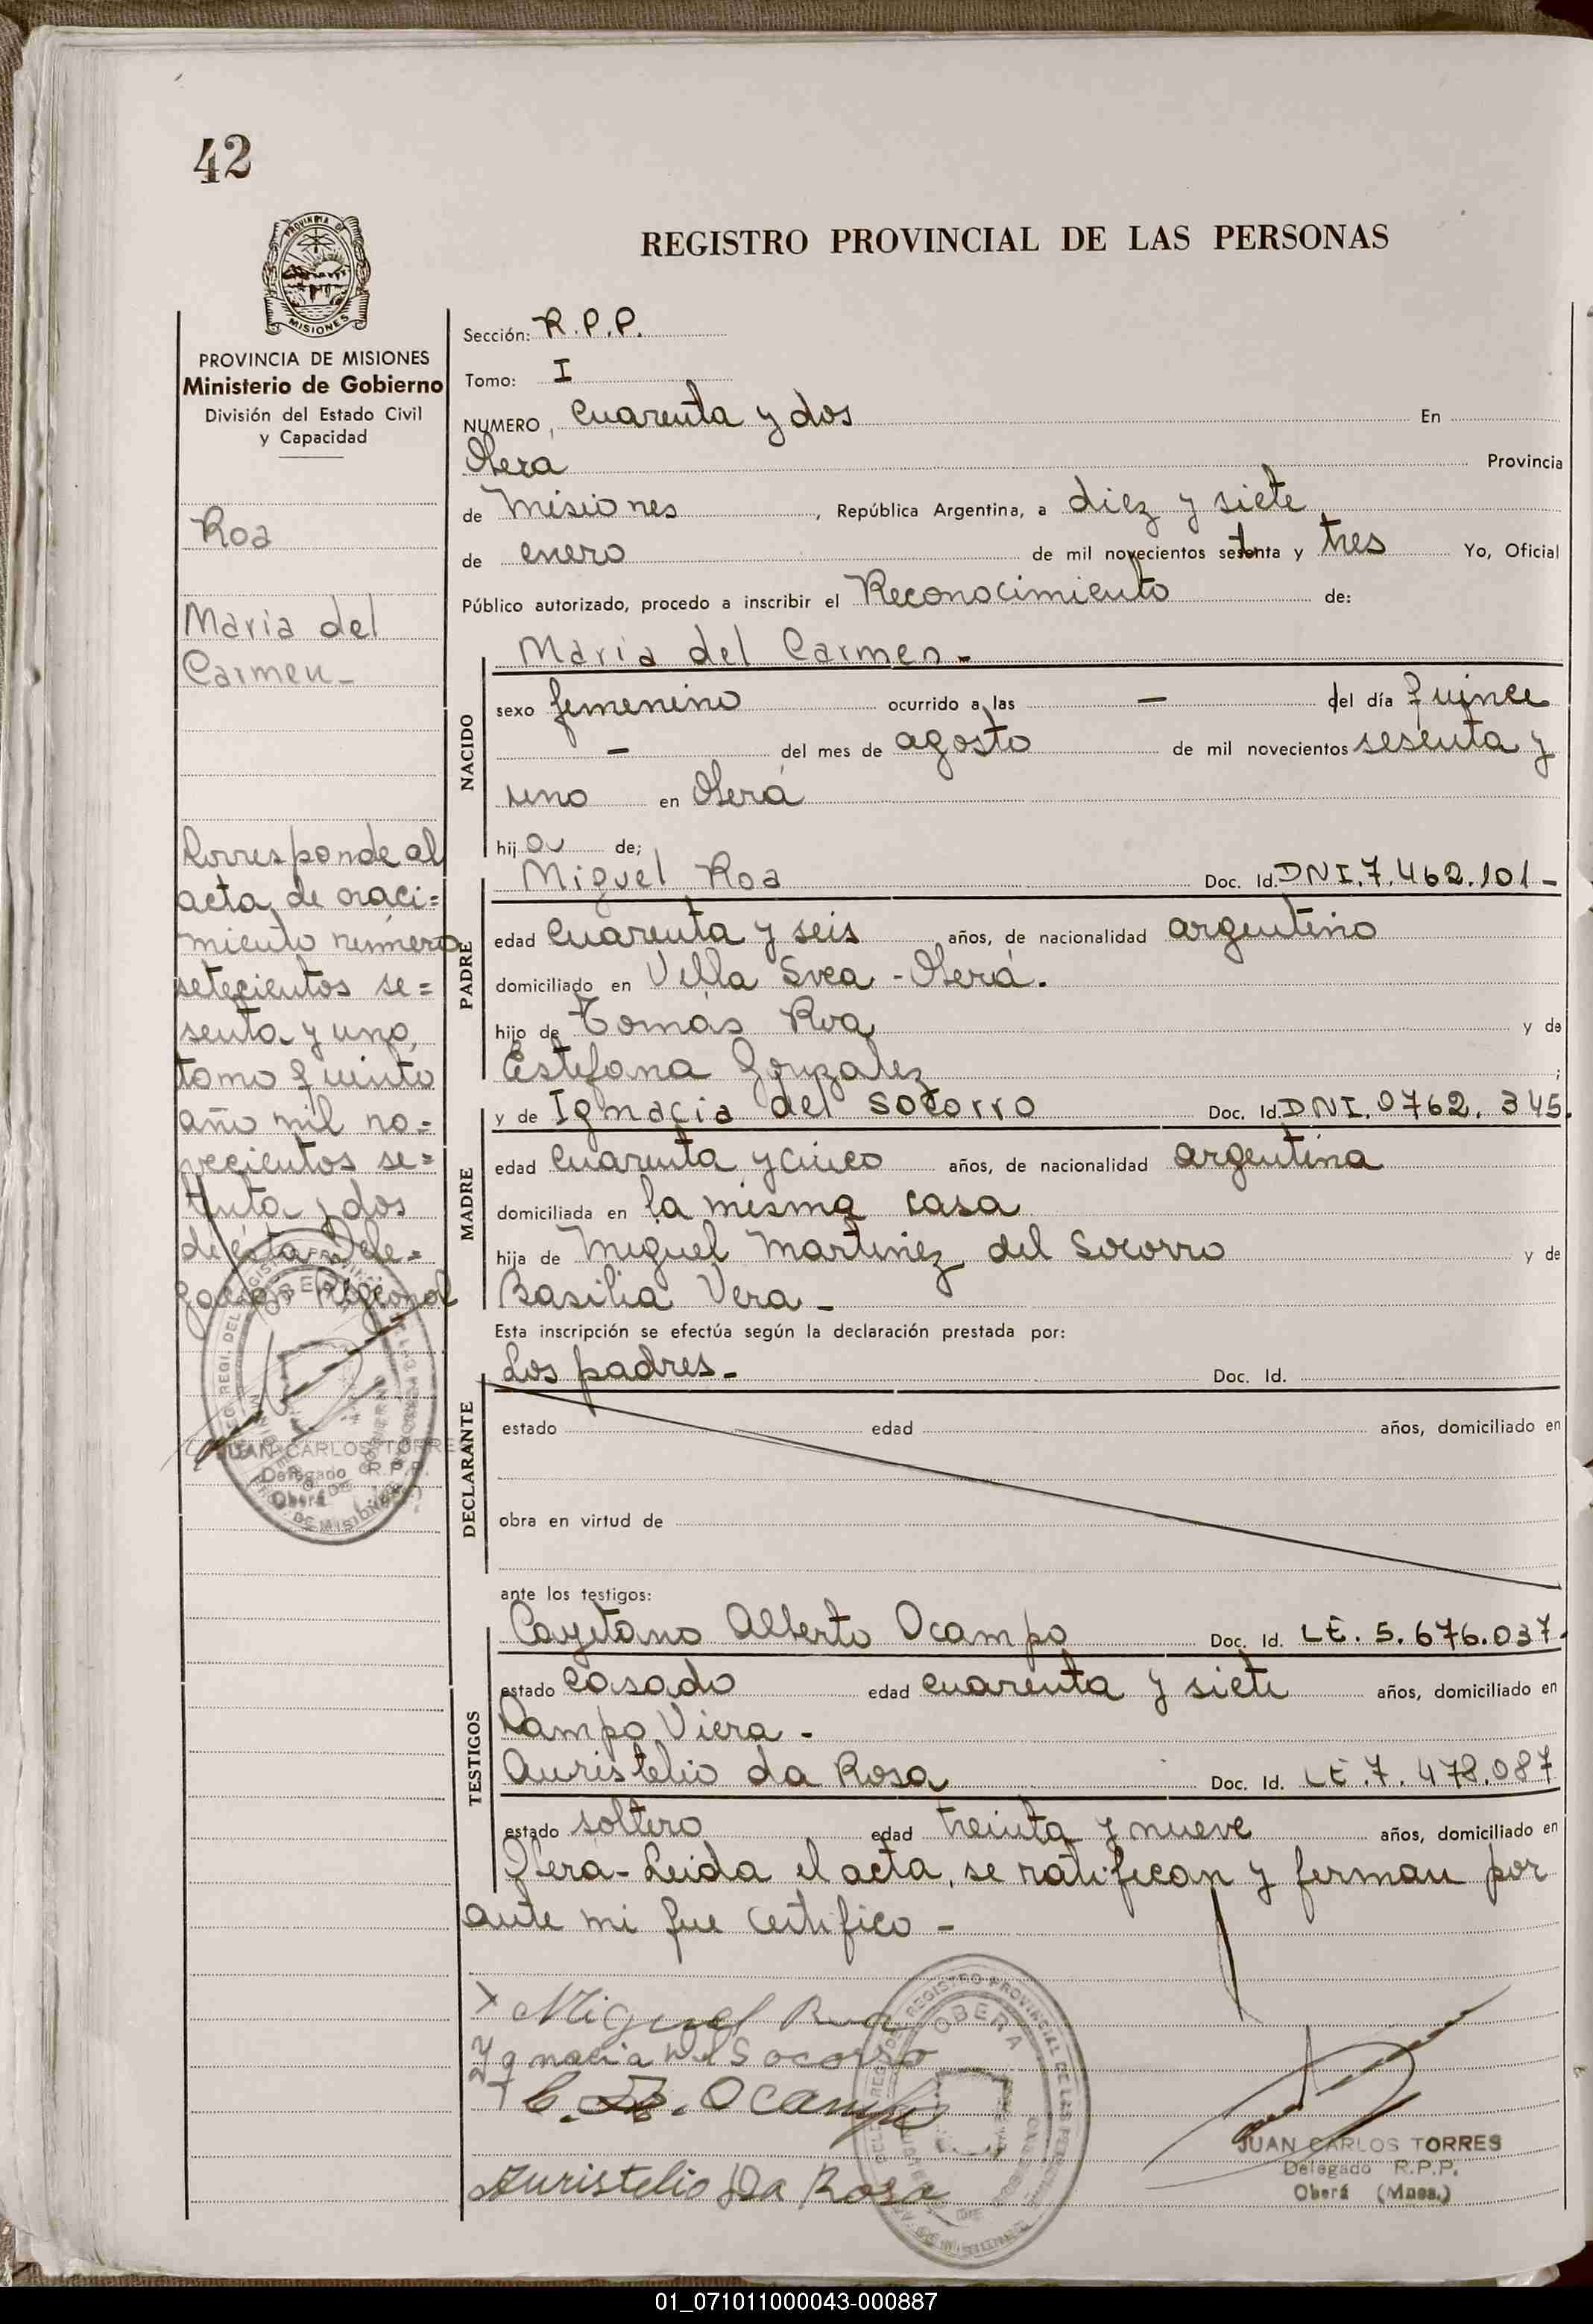 42
PROVINCIA DE MISIONES
MISIONES
PROVINCIA DE MISIONES
Ministerio de Gobierno
División del Estado Civil
y Capacidad
Roa
Maria del
Carmen_
Corresponde al
acta de naci=
miento número
setecientos se=
senta y uno,
tomo quinto
año mil no=
vecientos se=
tenta y dos
de ésta Dele=
gación Regional
OBERA
JUAN CARLOS TORRES
Delegado R.P.P.
Oberá
REGISTRO PROVINCIAL DE LAS PERSONAS
Sección: R.P.P.
Tomo: I
NUMERO, cuarenta y dos En
Obera Provincia
de Misiones, República Argentina, a diez y siete
de enero de mil novecientos setenta y tres Yo, Oficial
Público autorizado, procedo a inscribir el Reconocimiento de:
NACIDO
Maria del Carmen.-
sexo femenino ocurrido a las — del día quince
— del mes de agosto de mil novecientos sesenta y
uno en Oberá
hija de;
PADRE
Miguel Roa Doc. Id. DNI.7.462.101-
edad cuarenta y seis años, de nacionalidad argentino
domiciliado en Villa Svea - Oberá.
hijo de Tomás Roa y de
Estefana Gonzalez;
MADRE
y de Ignacia del Socorro Doc. Id. DNI.0762.345.
edad cuarenta y cinco años, de nacionalidad argentina
domiciliada en la misma casa
hija de Miguel Martinez del Socorro y de
Basilia Vera_
Esta inscripción se efectúa según la declaración prestada por:
DECLARANTE
Los padres.- Doc. Id.
estado edad años, domiciliado en
obra en virtud de
ante los testigos:
TESTIGOS
Cayetano Alberto Ocampo Doc. Id. LE. 5.676.037.
estado casado edad cuarenta y siete años, domiciliado en
Campo Viera -
Auristelio da Rosa Doc. Id. LE.7.478.087
estado soltero edad treinta y nueve años, domiciliado en
Obera - Leida el acta, se ratifican y firman por
ante mi que certifico -
x Miguel Roa
Ygnacia del Socorro
Ocampo
Auristelio Da Rosa
REGISTRO PROVINCIAL DE LAS PERSONAS
OBERA
JUAN CARLOS TORRES
Delegado R.P.P.
Oberá (Mnes.)
01_071011000043-000887